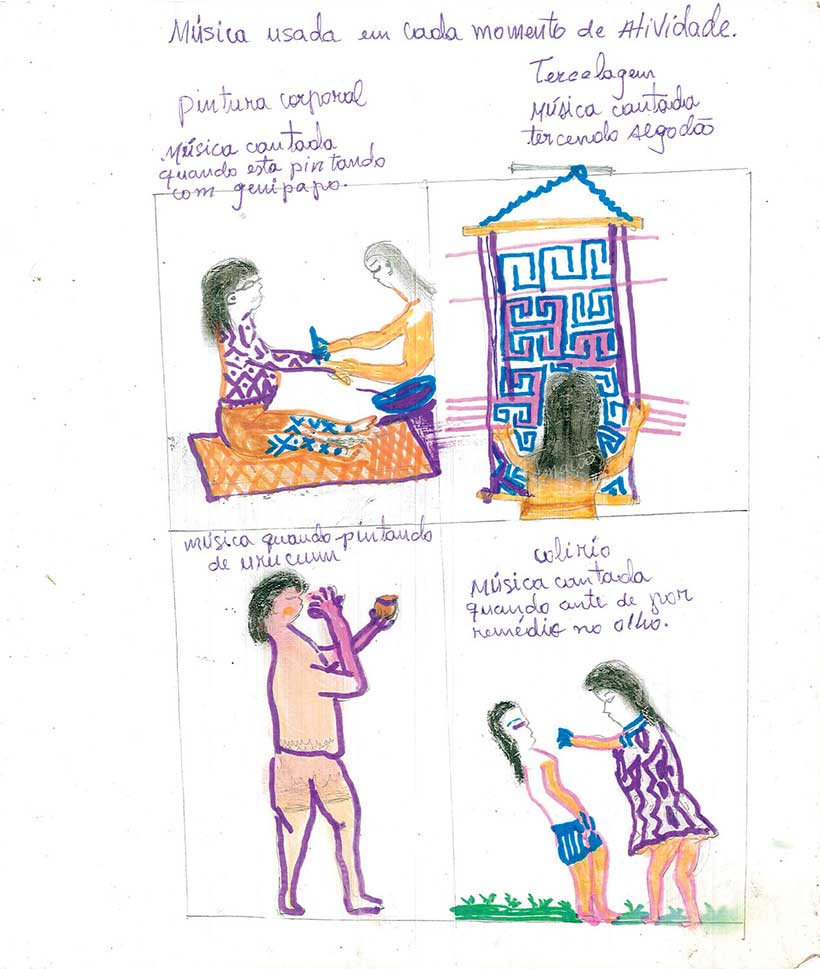 Música usada em cada momento de Atividade.
pintura corporal
Música cantada
quando esta pintando
com genipapo.
Tercelagem
Música cantada
tercendo Algodão
música quando pintando
de urucuum
colirio
Música cantada
quando ante de por
remédio no olho.